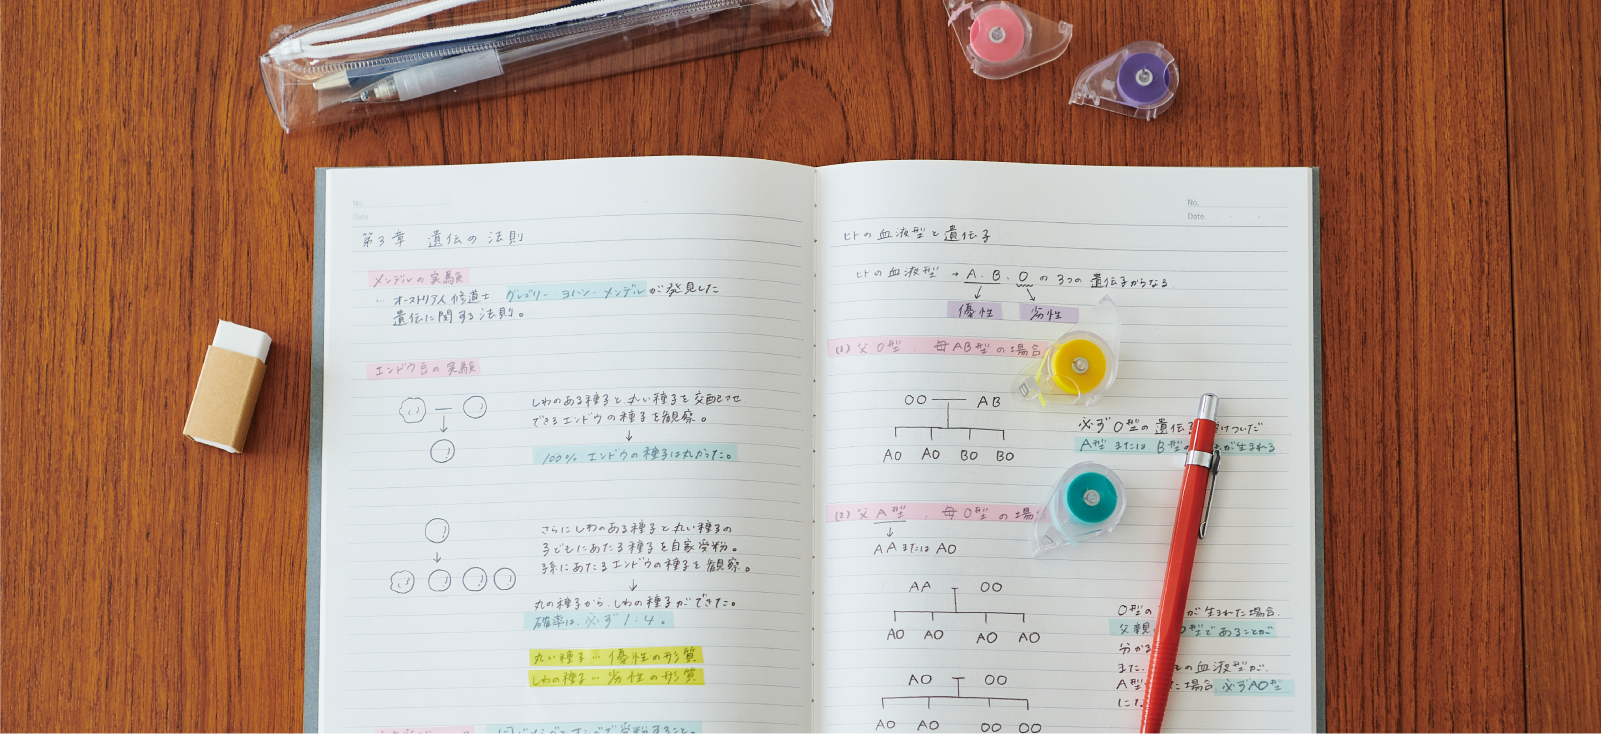 No.
Date.
第3章 遺伝の法則
メンデルの実験
… オーストリア人修道士 グレゴリー・ヨハン・メンデルが発見した
遺伝に関する法則。
エンドウ豆の実験
しわのある種子と丸い種子を交配させ
できるエンドウの種子を観察。
↓
100% エンドウの種子は丸かった。
さらにしわのある種子と丸い種子の
子どもにあたる種子を自家受粉。
孫にあたるエンドウの種子を観察。
↓
丸の種子から、しわの種子ができた。
確率は、必ず1:4。
丸い種子 … 優性の形質
しわの種子 … 劣性の形質
No.
Date.
ヒトの血液型と遺伝子
ヒトの血液型 → A・B・Oの3つの遺伝子からなる
優性 劣性
(1) 父O型、母AB型の場合
OO AB
AO AO BO BO
必ずO型の遺伝子
A型またはB型の が生まれる
(2) 父A型、母O型の場
↓
AAまたはAO
AA OO
AO AO AO AO
O型の が生まれた場合、
父親 O型であることが
分かる
また、 の血液型が、
A型 た場合、必ずAO型
にな
AO OO
AO AO OO OO